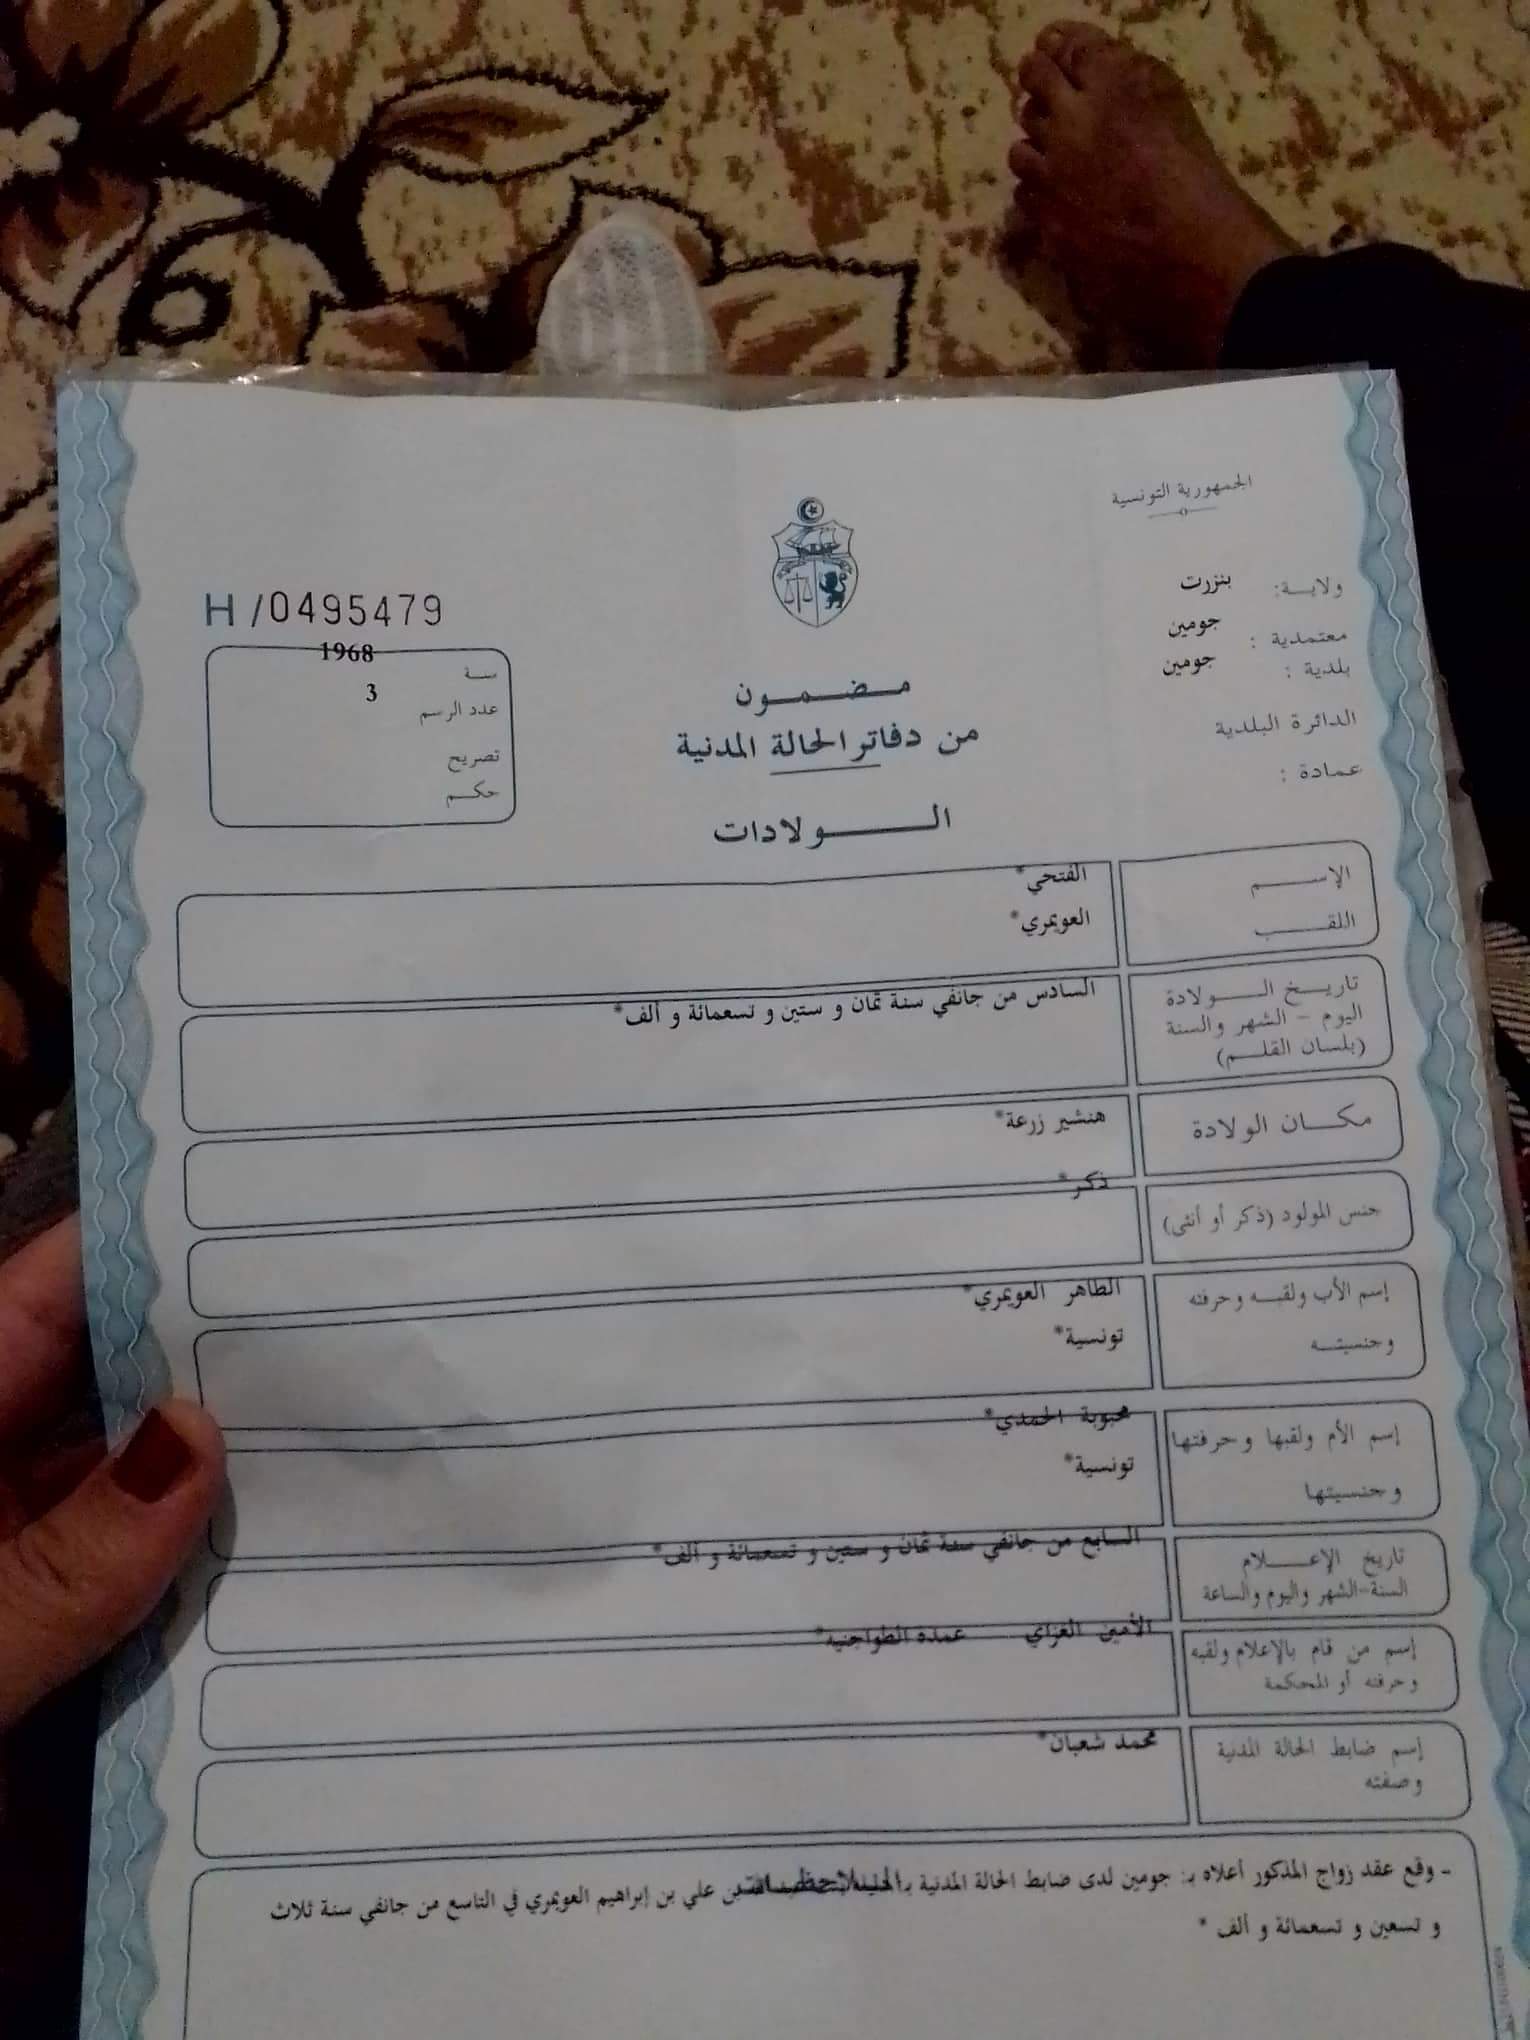 الجمهورية التونسية
ولايـــة: بنزرت
معتمدية : جومين
بلدية : جومين
الدائرة البلدية
عمادة :
مـضـمـــون
من دفاتر الحالة المدنية
الـــولادات
H/0495479
سنــة 1968
عدد الرسم 3
تصريح
حكــم
الإســـم الفتحي*
اللقـــب العويمري*
تاريــخ الـــولادة السادس من جانفي سنة ثمان و ستين و تسعمائة و ألف*
اليوم - الشهر والسنة
(بلسان القلــم)
مكــان الولادة هنشير زرعة*
جنس المولود (ذكر أو أنثى) ذكر*
إسم الأب ولقبــه وحرفته الطاهر العويمري*
وجنسيتــه تونسية*
إسم الأم ولقبها وحرفتها محبوبة الحمدي*
وجنسيتها تونسية*
تاريخ الإعــــلام السابع من جانفي سنة ثمان و ستين و تسعمائة و ألف*
السنة-الشهر واليوم والساعة
إسم من قام بالإعلام ولقبه الأمين الغزاي عمدة الطواجنية*
وحرفته أو المحكمة
إسم ضابط الحالة المدنية محمد شعبان*
وصفته
الملاحظـــات
- وقع عقد زواج المذكور أعلاه بـ: جومين لدى ضابط الحالة المدنية بـ بن علي بن إبراهيم العويمري في التاسع من جانفي سنة ثلاث
و تسعين و تسعمائة و ألف *